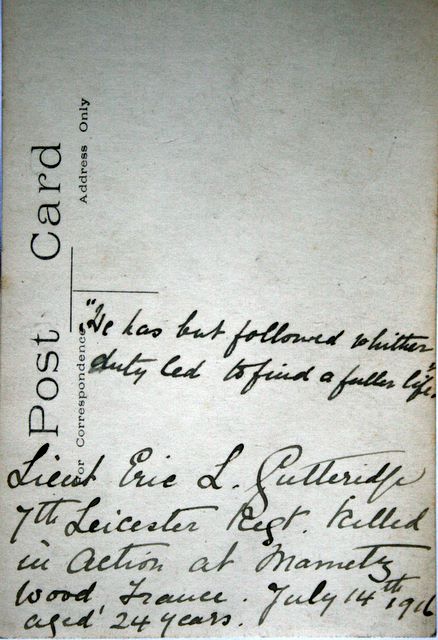 Post Card
Address Only
For Correspondence
"He has but followed whither
duty led to find a fuller life."
Lieut Eric L. Gutteridge
7th Leicester Regt. Killed
in Action at Mametz
Wood France. July 14th 1916
aged 24 years.